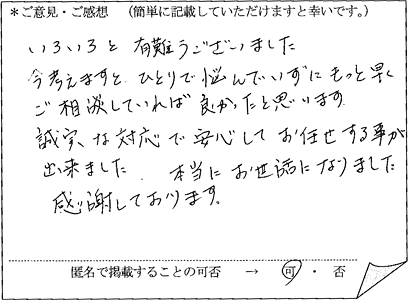 ＊ご意見・ご感想　（簡単に記載していただけますと幸いです。）
いろいろと 有難うございました
今考えますと、ひとりで悩んでいずにもっと早く
ご相談していれば良かったと思います。
誠実な対応で安心してお任せする事が
出来ました。本当にお世話になりました
感謝しております。
匿名で掲載することの可否　→　可・否